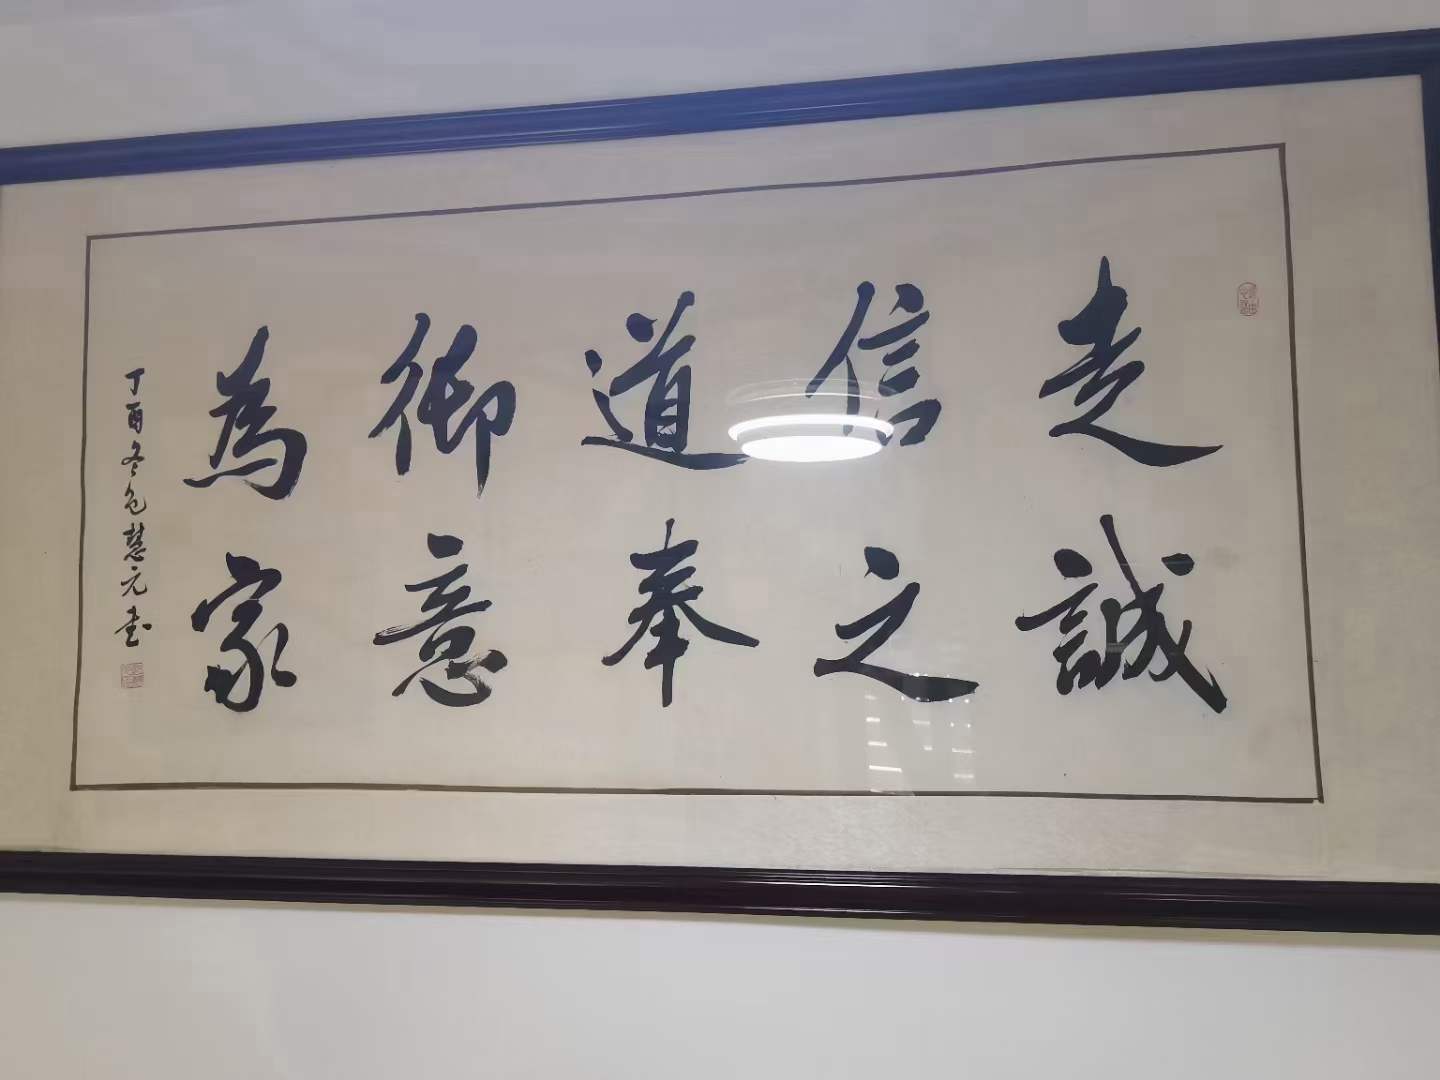 走誠
信之
道奉
御意
為家
丁酉冬包慧元书